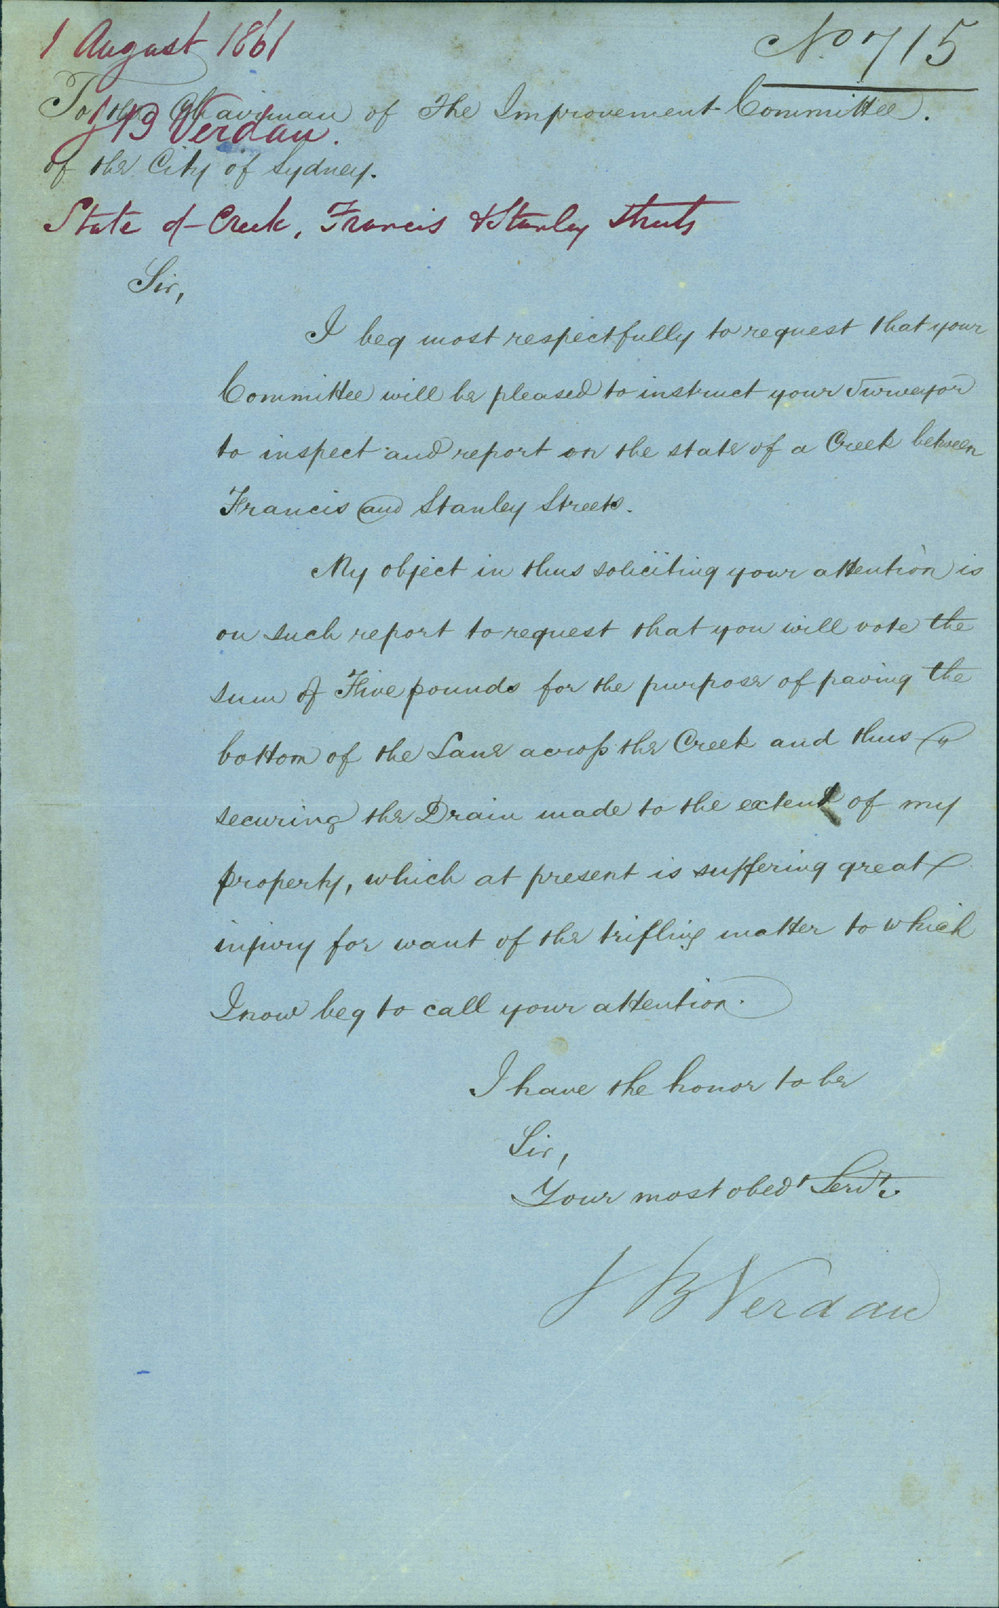 1 August 1861
No. 715
To the Chairman of The Improvement Committee.
J B Verdau.
of the City of Sydney.
State of Creek, Francis & Stanley Streets
Sir,
I beg most respectfully to request that your
Committee will be pleased to instruct your Surveyor
to inspect and report on the state of a Creek between
Francis and Stanley Streets.
My object in thus soliciting your attention is
on such report to request that you will vote the
sum of Five pounds for the purpose of paving the
bottom of the Lane across the Creek and thus
securing the Drain made to the extent of my
property, which at present is suffering great
injury for want of the trifling matter to which
I now beg to call your attention.
I have the honor to be
Sir,
Your most obedt. Servt.
J B Verdau